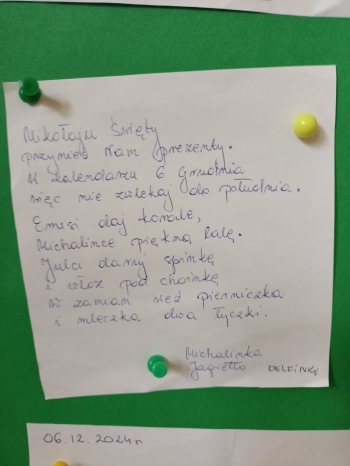 Mikołaju Święty
przynieś Nam prezenty.
W kalendarzu 6 Grudnia
więc nie zwlekaj do południa.
Emisi daj korale,
Michalince piękną lalę.
Julci daruj spinkę
i włóż pod choinkę
W zamian weź pierniczka
i mleczka dwa łyczki.
Michalinka
Jagiełło DELFINKI
06.12.2024r